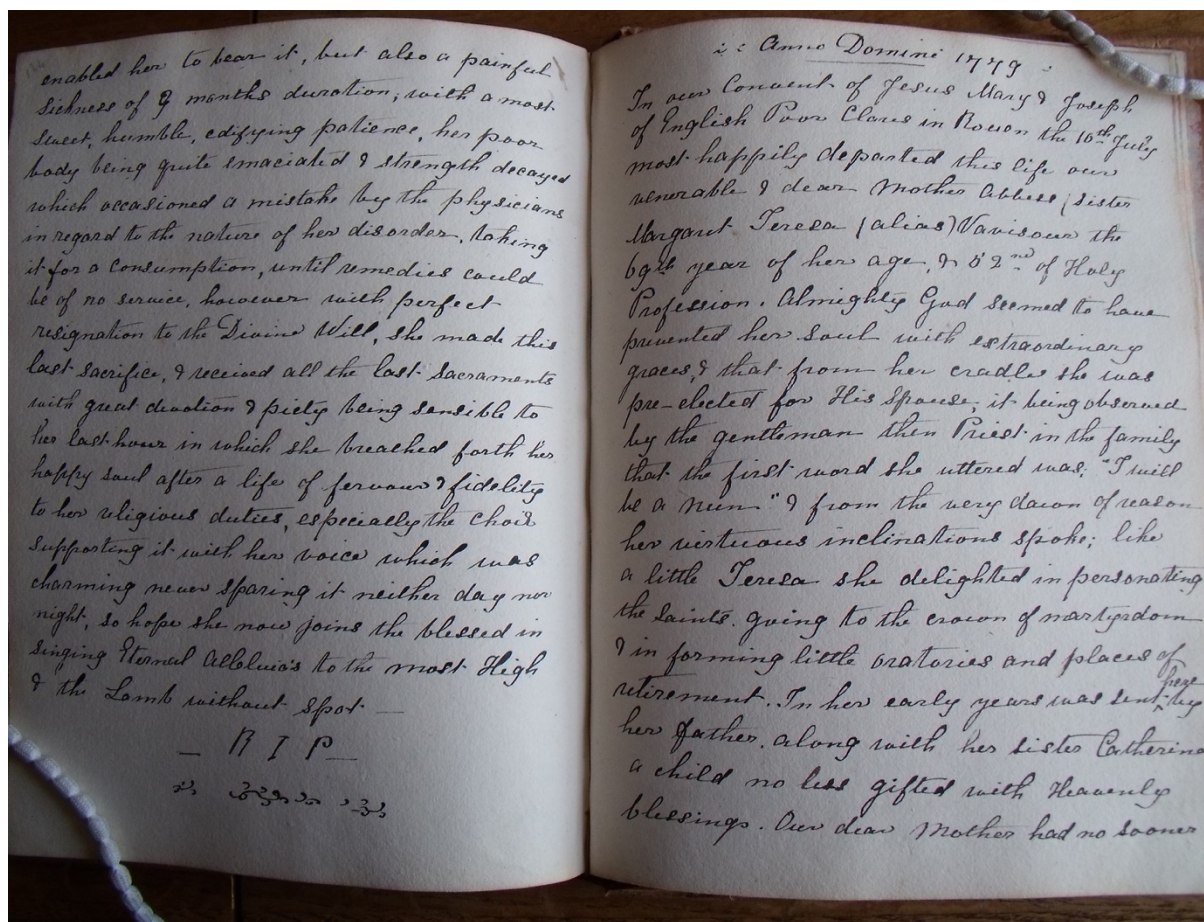 enabled her to bear it, but also a painful
sickness of 9 months duration; with a most
sweet, humble, edifying patience, her poor
body being quite emaciated & strength decayed
which occasioned a mistake by the physicians
in regard to the nature of her disorder, taking
it for a consumption, until remedies could
be of no service, however with perfect
resignation to the Divine Will, she made this
last sacrifice, & received all the last Sacraments
with great devotion & piety being sensible to
her last hour in which she breathed forth her
happy soul after a life of fervour & fidelity
to her religious duties, especially the Choir
supporting it with her voice which was
charming never sparing it neither day nor
night, so hope she now joins the blessed in
singing Eternal Alleluia's to the most High
& the Lamb without spot —
— R I P —
Anno Domini 1779
In our Convent of Jesus Mary & Joseph
of English Poor Clares in Rouen the 10th July
most happily departed this life our
venerable & dear Mother Abbess (Sister
Margaret Teresa (alias) Vavisour the
69th year of her age, & 52nd of Holy
Profession. Almighty God seemed to have
prevented her soul with extraordinary
graces, & that from her cradle she was
pre-elected for His Spouse, it being observed
by the gentleman then Priest in the family
that the first word she uttered was; "I will
be a Nun" & from the very dawn of reason
her virtuous inclinations spoke; like
a little Teresa she delighted in personating
the saints, going to the crown of martyrdom
& in forming little oratories and places of
retirement. In her early years was sent here by
her father, along with her sister Catherine
a child no less gifted with Heavenly
blessings. Our dear Mother had no sooner